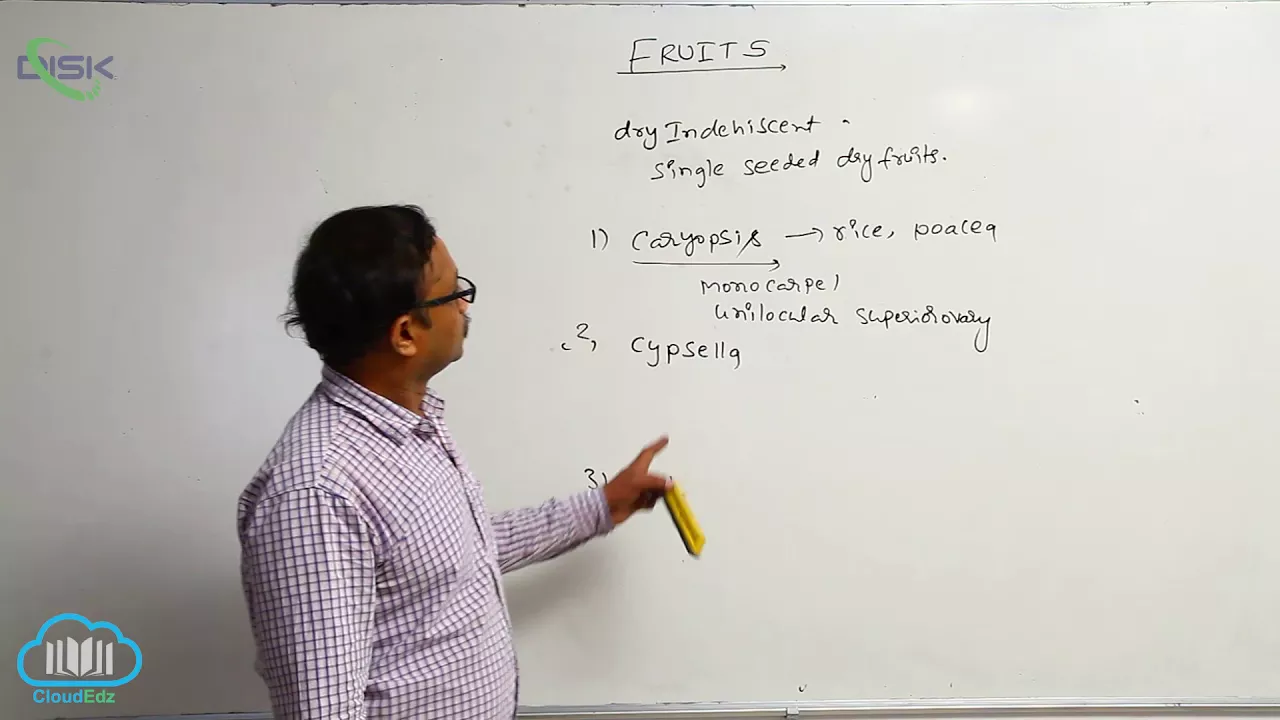 DISK
FRUITS
dry Indehiscent .
single seeded dry fruits.
1) Caryopsis → rice, poacea
monocarpel
Unilocular superiorovary
2, cypsella
3)
CloudEdz